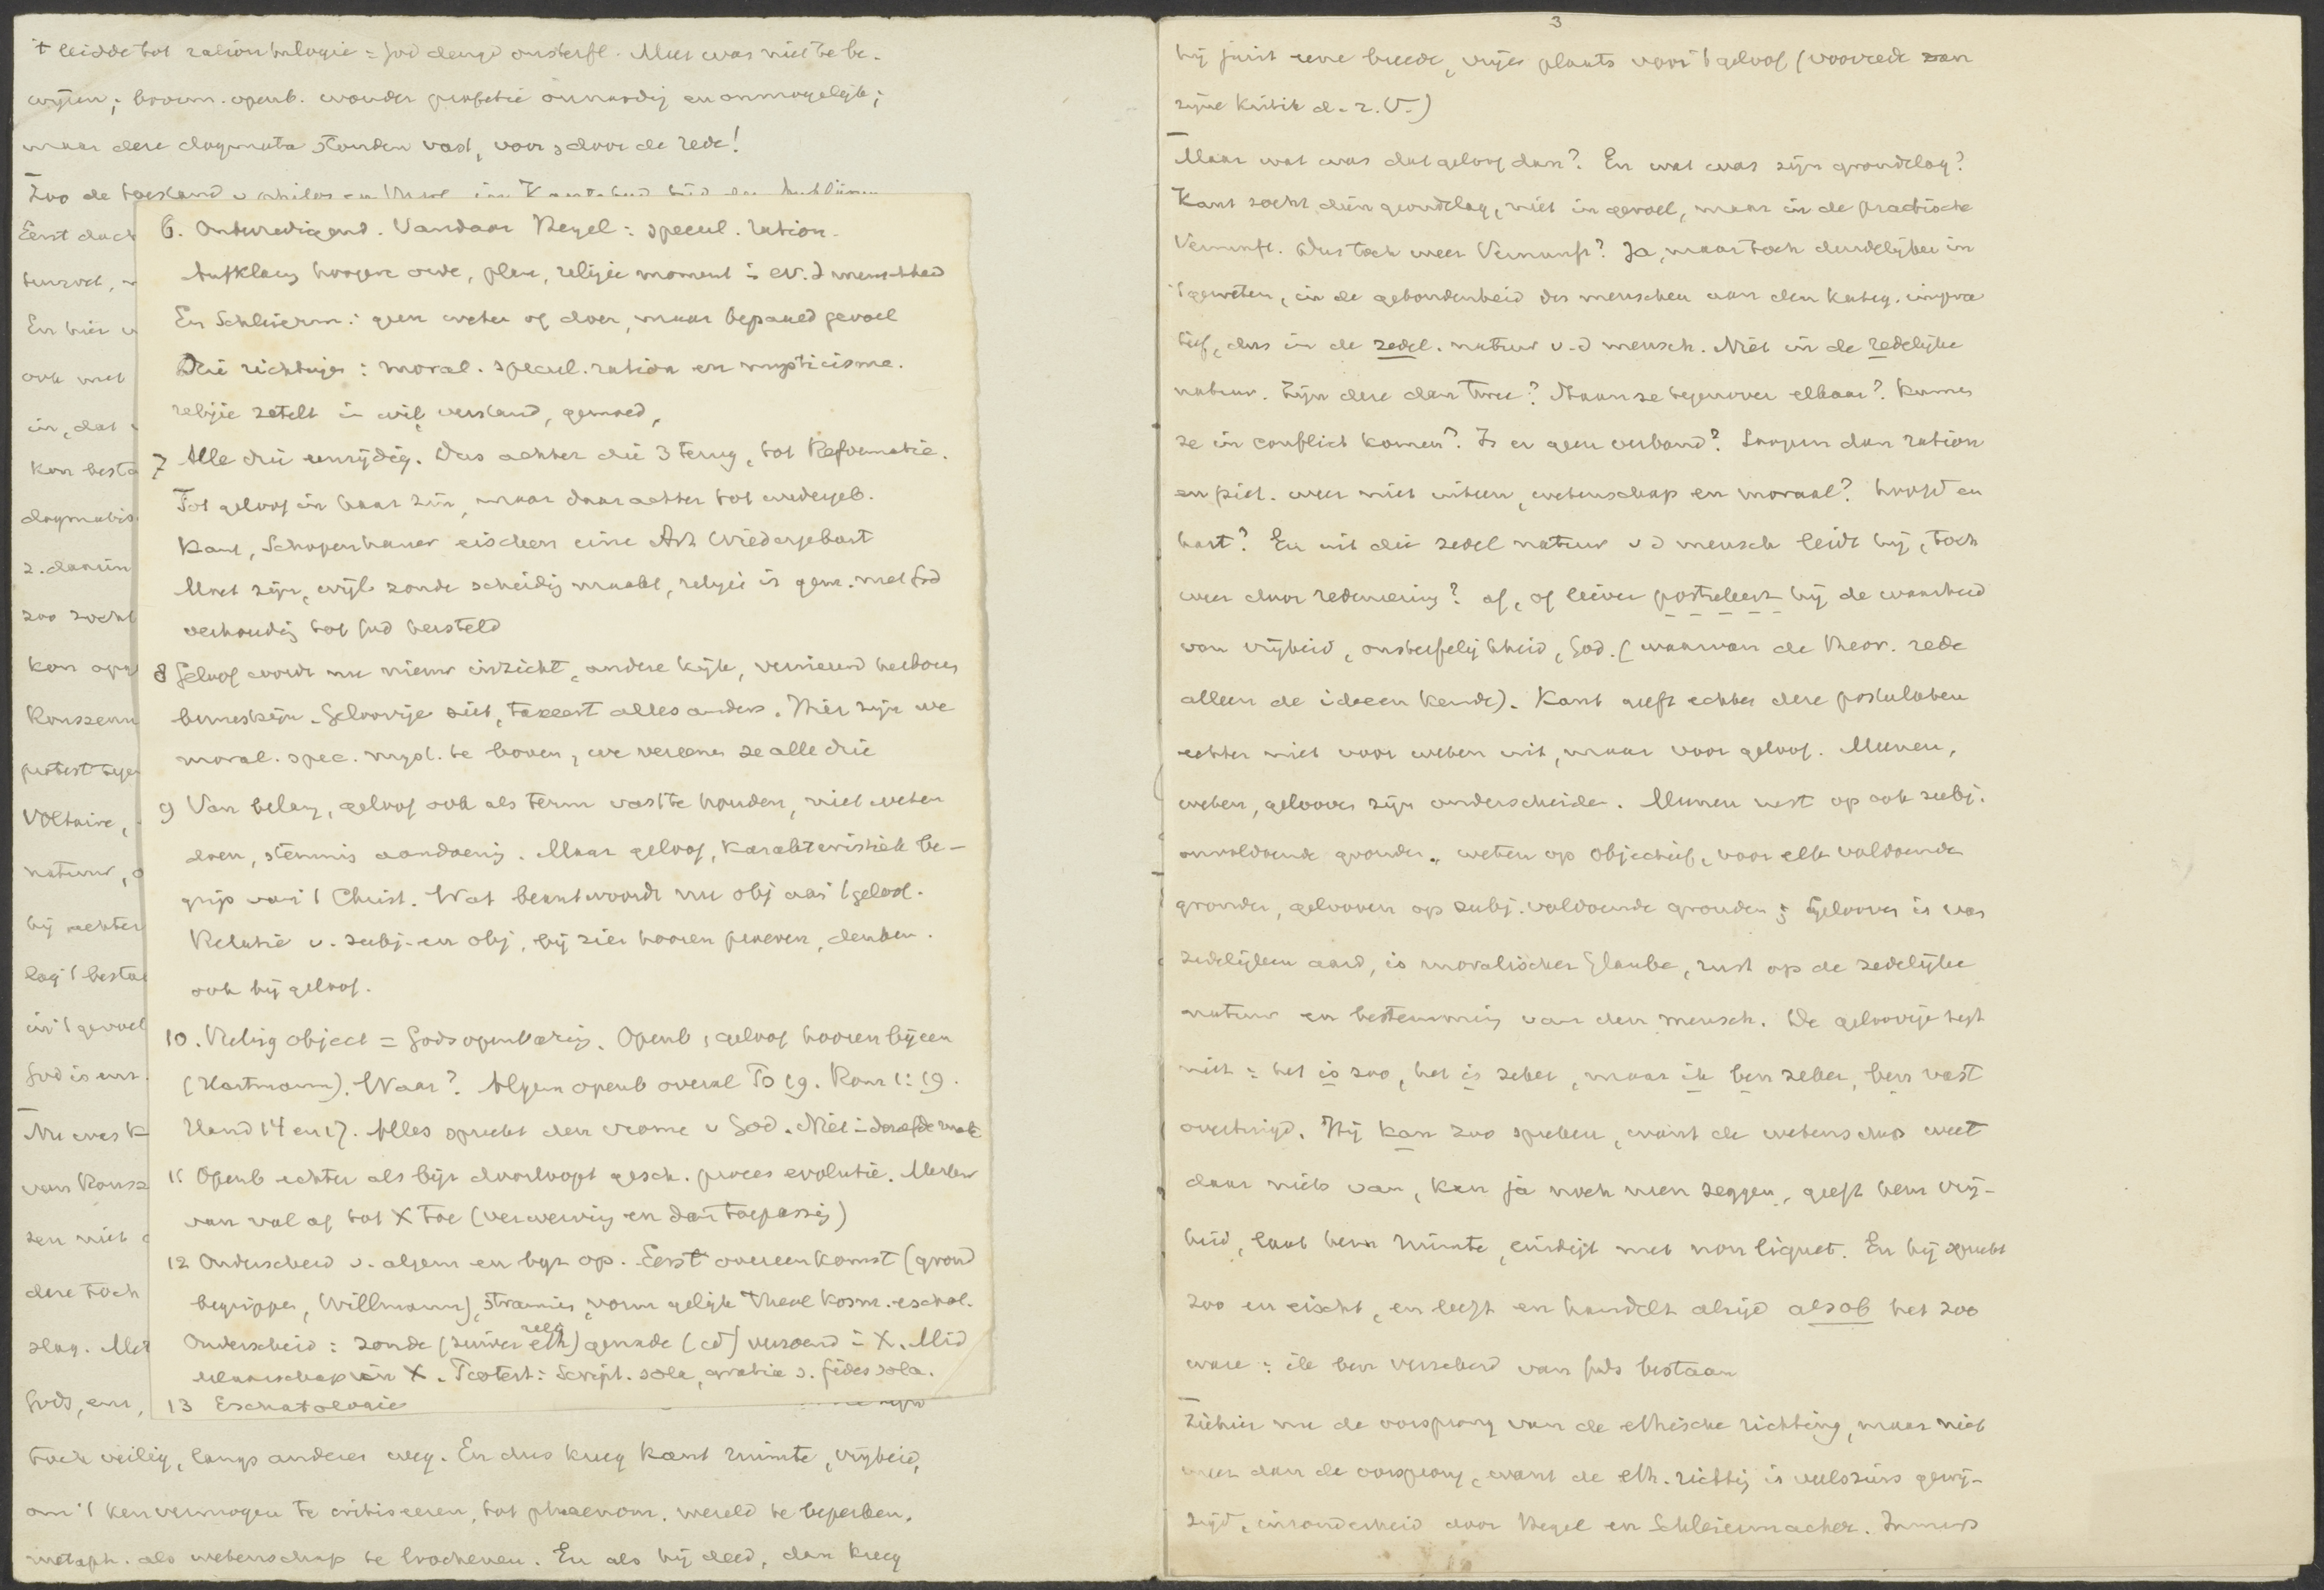 't leidde tot ration theologie = God deugd onsterfl. Meer was niet te be-
wijzen; bovenn. openb. wonder profetie onnoodig en onmogelijk;
maar deze dogmata stonden vast, voor & door de rede!
Zoo de toestand v philos en
Eerst
En hier
ook met
in, dat
Kon besta
dogmatis
zoo zocht
kon
Rousseau
protest tege
Voltaire,
natuur,
hij achter
lag 't bestaa
in 't gevoel
God is
Nu was K
van Rouss
zen niet
deze toch
slag. Met
Gods,
toch veilig, langs anderen weg. En dus kreeg Kant ruimte, vrijheid,
om 't kenvermogen te critiseeren, tot phaenom. wereld te beperken,
metaph. als wetenschap te loochenen. En als hij deed, dan kreeg
6. Onbevredigend. Vandaar Hegel: specul. ration.
Aufklärg hoogere orde, religie moment in ev. d menschheid
En Schleierm: geen weten of doen, maar bepaald gevoel
Drie richtingen: moral. specul. ration en mysticisme.
religie zetelt in wil, verstand, gemoed,
7 Alle drie eenzijdig. Dus achter die 3 terug, tot Reformatie.
Tot geloof in haar zin, maar daarachter tot wedergeb.
Kant, Schopenhauer eischen eine Art Wiedergeburt
Moet zijn, wijl zonde scheiding maakt, religie is gem. met God
verhouding tot God hersteld
8 Geloof wordt nu nieuw inzicht, andere kijk, vernieuwd herboren
bewustzijn. Geloovige ziet, taxeert alles anders. Hier zijn we
moral. spec. myst. te boven, we vereenen ze alle drie
9 Van belang, geloof ook als term vast te houden, niet weten
doen, stemmis aandoening. Maar geloof, karakteristiek be-
grip van 't Christ. Wat beantwoordt nu obj aan 't geloof.
Relatie v. subj. en obj, bij zien hooren proeven, denken.
ook bij geloof.
10. Relig object = Gods openbaring. Openb & geloof hooren bijeen
(Hartmann). Waar? Algem openb overal Ps 19. Rom 1:19.
Hand 14 en 17. Alles spreekt den vrome v God. Niet in dezelfde mate
11 Openb echter als bijz doorloopt gesch. proces evolutie. Merken
van val af tot X toe (verwerving en dan toepassing)
12 Onderscheid v. algem en byz op. Eerst overeenkomst (grond
begrippen, Willmann), vorm gelijk Theol kosm. eschat.
Onderscheid: zonde (zuiver relig eth) genade (id) verzoend in X. Mid
delaarschap in X. Protest: Script. sola, gratia s. fides sola.
13 Eschatologie
3
hij juist eene breede, vrije plaats voor 't geloof (voorrede van
zijne Kritik d. r. V.)
Maar wat was dat geloof dan? En wat was zijn grondslag?
Kant zocht dien grondslag, niet in gevoel, maar in de practische
Vernunft. Dus toch weer Vernunft? Ja, maar toch duidelijker in
't geweten, in de gebondenheid des menschen aan den kateg. impera
tief, dus in de zedel. natuur v. d mensch. Niet in de redelijke
natuur. Zijn deze dan twee? Staan ze tegenover elkaar? Kunnen
ze in conflict komen? Is er geen verband? Loopen dan ration
en piet. weer niet uiteen, wetenschap en moraal? hoofd en
hart? En uit die zedel natuur v d mensch leidt hij, toch
weer door redeneering? af, of liever postuleert hij de waarheid
van vrijheid, onsterfelijkheid, God. (waarvan de theor. rede
alleen de ideeen kende). Kant geeft echter deze postulaten
echter niet voor weten uit, maar voor geloof. Meenen,
weten, gelooven zijn onderscheiden. Meenen rust op ook subj.
onvoldoende gronden, weten op objectief, voor elk voldoende
gronden, gelooven op subj. voldoende gronden; gelooven is van
zedelijken aard, is moralischer Glaube, rust op de zedelijke
natuur en bestemming van den mensch. De geloovige zegt
niet: het is zoo, het is zeker, maar ik ben zeker, ben vast
overtuigd. Hij kan zoo spreken, want de wetenschap weet
daar niets van, kan ja noch neen zeggen, geeft hem vrij-
heid, laat hem ruimte, eindigt met non liquet. En hij spreekt
zoo en eischt, en leeft en handelt altijd alsob het zoo
ware: ik ben verzekerd van Gods bestaan
Ziehier nu de oorsprong van de ethische richting, maar niet
meer dan de oorsprong, want de eth. richting is veelszins gewij-
zigd, inzonderheid door Hegel en Schleiermacher. Immers